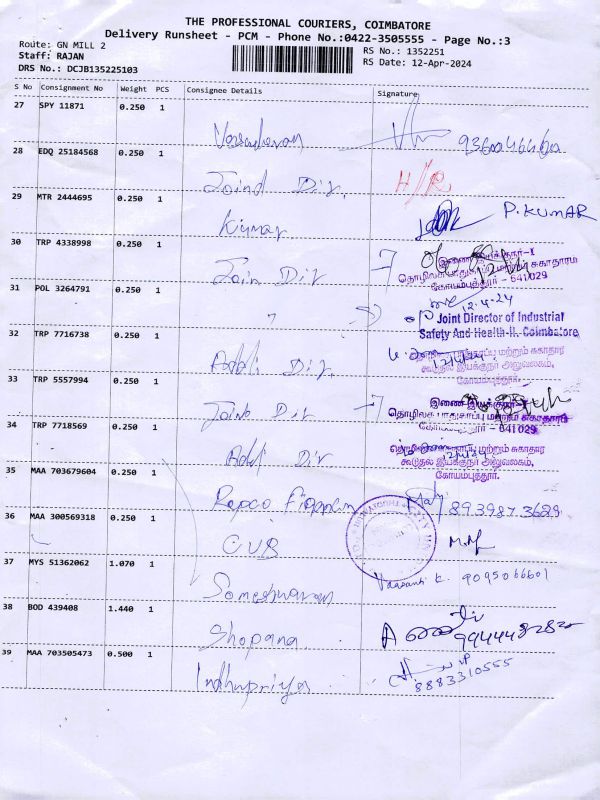 THE PROFESSIONAL COURIERS, COIMBATORE
Delivery Runsheet - PCM - Phone No.:0422-3505555 - Page No.:3
Route: GN MILL 2
RS No.: 1352251
Staff: RAJAN
RS Date: 12-Apr-2024
DRS No.: DCJB135225103
S No Consignment No Weight PCS Consignee Details Signature
27 SPY 11871 0.250 1
28 EDQ 25184568 0.250 1 Joind Dir. H/R
29 MTR 2444695 0.250 1 Kumar P. KUMAR
30 TRP 4338998 0.250 1 Join Dir
இணை இயக்குநர்-I
தொழிலக பாதுகாப்பு மற்றும் சுகாதாரம்
கோயம்புத்தூர் - 641029
31 POL 3264791 0.250 1 12-4-24
Joint Director of Industrial
Safety And Health-II. Coimbatore
32 TRP 7716738 0.250 1 Addi Dir.
மற்றும் சுகாதார
கூடுதல் இயக்குநர் அலுவலகம்,
கோயம்புத்தூர்.
33 TRP 5557994 0.250 1 Joint Dir
இணை இயக்குநர்-I
தொழிலக பாதுகாப்பு மற்றும் சுகாதாரம்
641029
34 TRP 7718569 0.250 1 Addl Dir
மற்றும் சுகாதார
கூடுதல் இயக்குநர் அலுவலகம்,
கோயம்புத்தூர்.
35 MAA 703679604 0.250 1 Repco
36 MAA 300569318 0.250 1 CUB
37 MYS 51362062 1.070 1 Someshwaran Vaasanti K. 9095066601
38 BOD 439408 1.440 1 Shopana
39 MAA 703505473 0.500 1 Indhupriya 8883310555